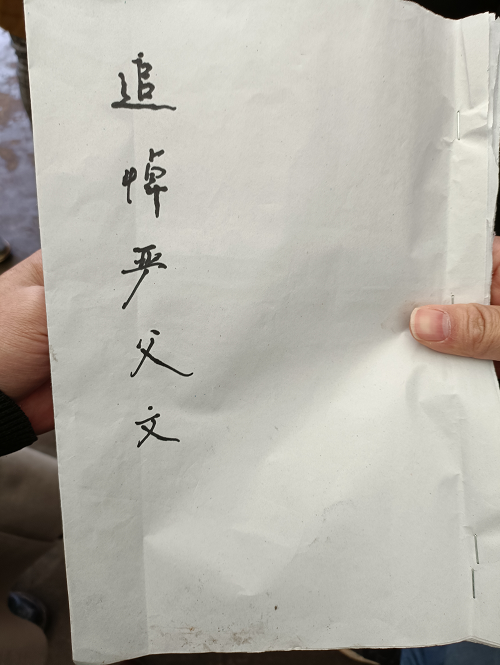 追悼严父文